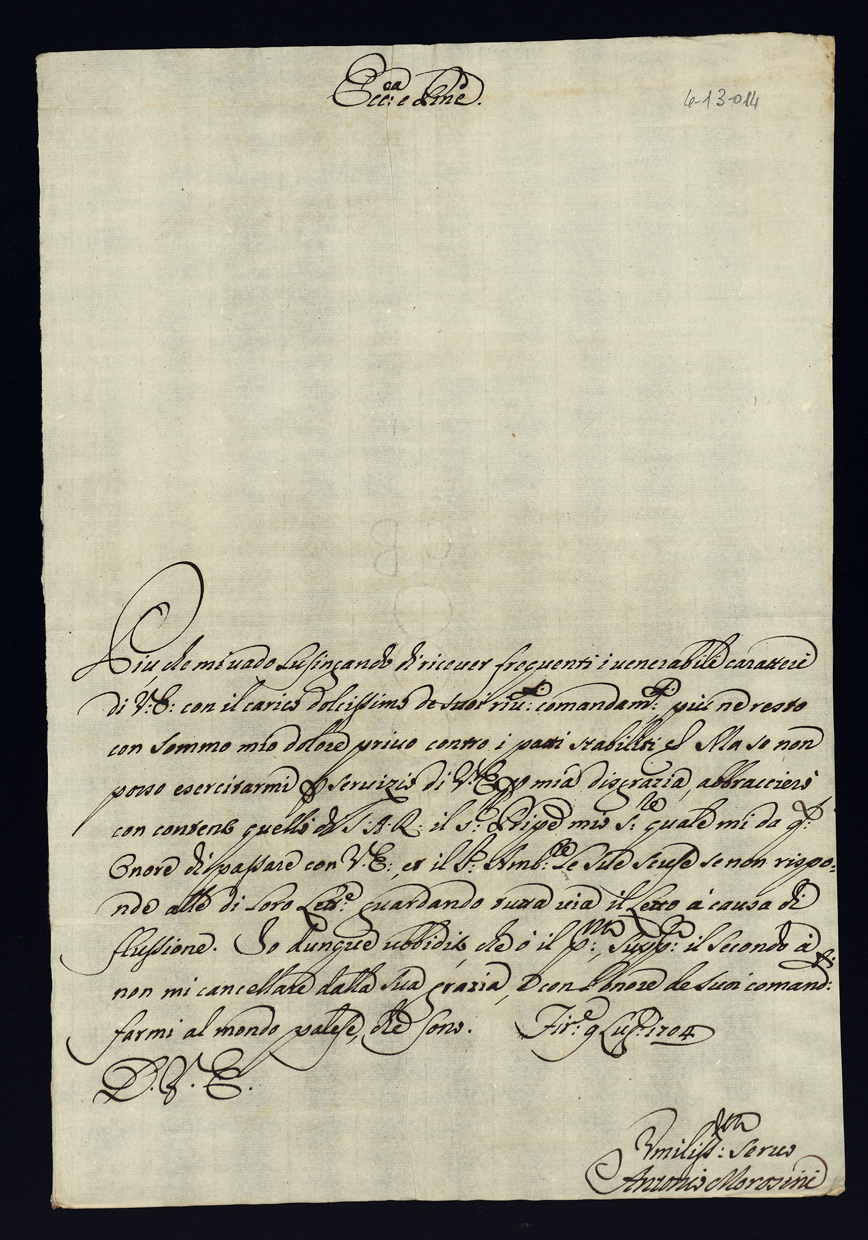 Ecc:ea e Pne.
6-13-014
Più che mi vado Lusingando di riceuer frequenti i uenerabili caratteri
di V: E: con il carico dolcissimo de suoi riu:ti comandam:ti più ne resto
con sommo mio dolore priuo contro i patti stabiliti Ma se non
posso esercitarmi p seruizio di V: E: p mia disgrazia, abbracciero
con content quello di S: A: R: il s:r Pripe mio s:re quale mi da q:to
Onore di passare con V: E:, et il S:r Amb:re Le sue scuse se non rispo:
nde alle di loro Lett:e guardando tutta uia il Letto à causa di
flussione. Io dunque ubbidito, che ò il p:mo Supp:co il secondo à
non mi cancellare dalla sua grazia, e con l'onore de suoi comand:ti
farmi al mondo palese, che sono. Fir:e 9 Lug:o 1704
D. V. E.
Vmiliss:mo Seruo
Antonio Morosini